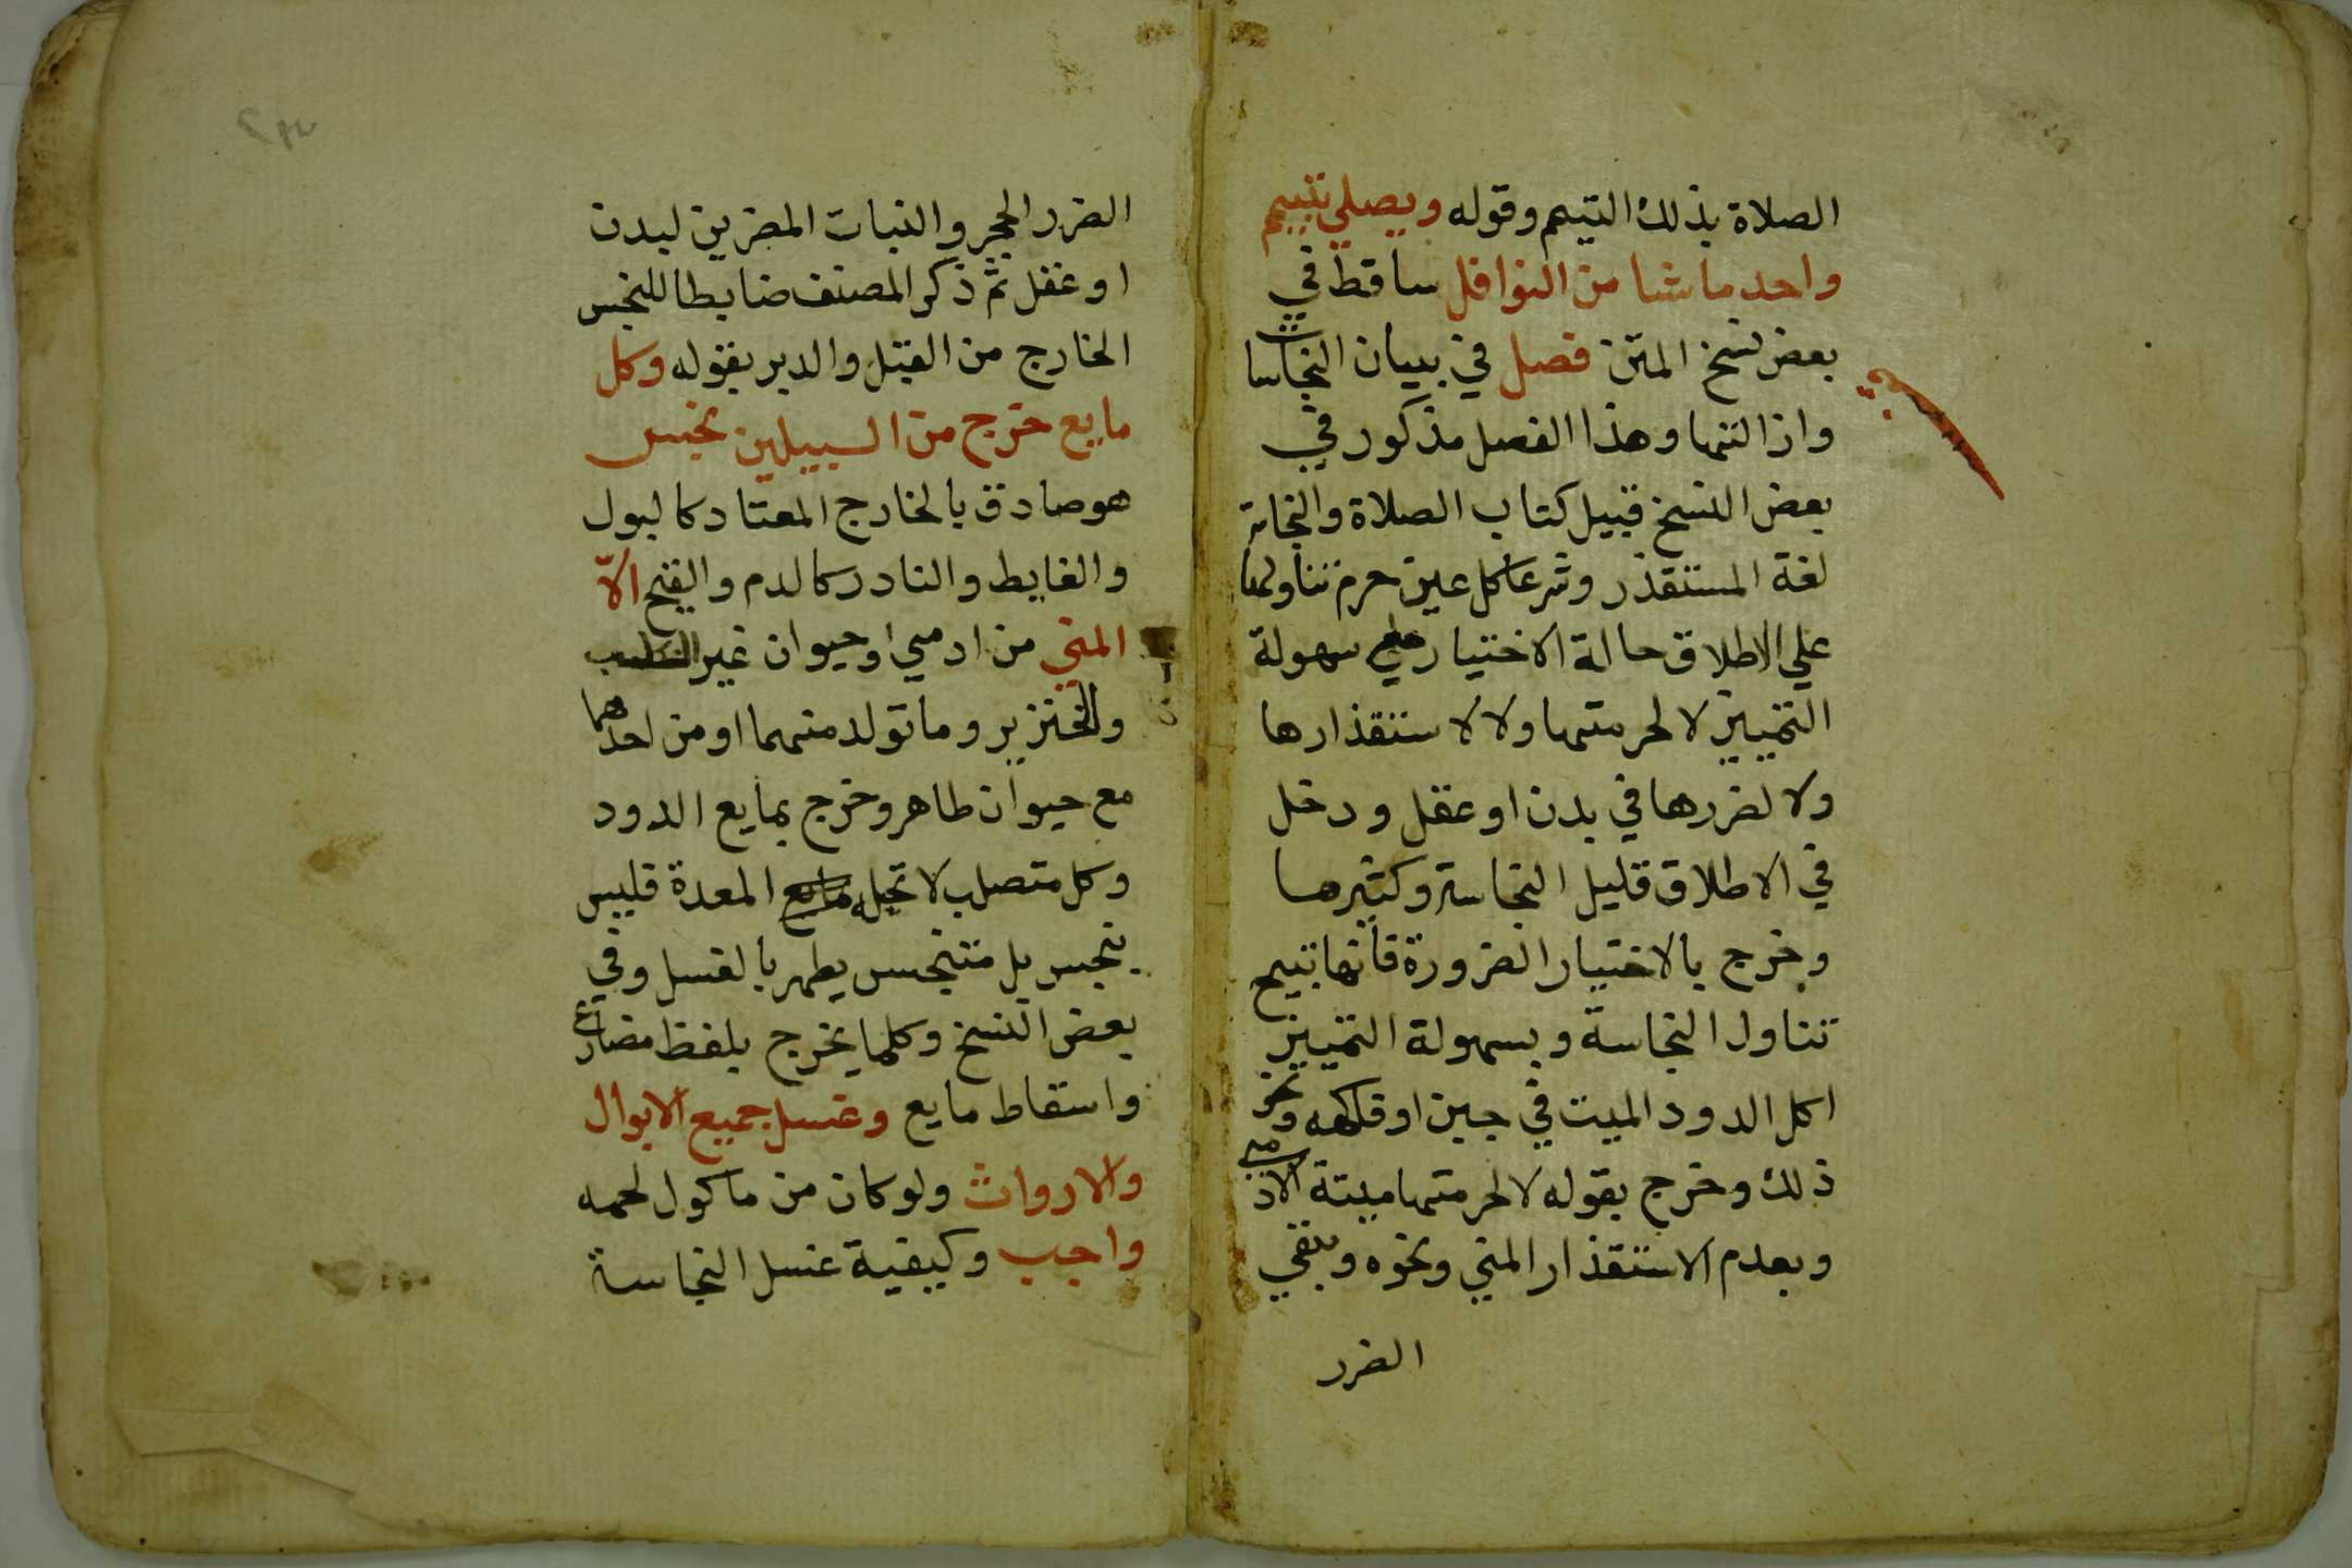 الصلاة بذلك التيمم وقوله ويصلي بتيمم
واحد ما شا من النوافل ساقط في
بعض نسخ المتن فصل في بيان النجاسات
وازالتها وهذا الفصل مذكور في
بعض النسخ قبيل كتاب الصلاة والنجاسة
لغة المستقذر وشرعا كل عين حرم تناولها
علي الاطلاق حالة الاختيار مع سهولة
التمييز لا لحرمتها ولا لاستقذارها
ولا لضررها في بدن او عقل ودخل
في الاطلاق قليل النجاسة وكثيرها
وخرج بالاختيار الضرورة فانها تبيح
تناول النجاسة وبسهولة التمييز
اكل الدود الميت في جبن او فاكهه ونحو
ذلك وخرج بقوله لا لحرمتها ميتة الادمي
وبعدم الاستقذار المني ونحوه وبنفي
الضرر
الضرر الحجر والنبات المضرين لبدن
او عقل ثم ذكر المصنف ضابطا للنجس
الخارج من القبل والدبر بقوله وكل
مايع خرج من السبيلين نجس
هو صادق بالخارج المعتاد كالبول
والغايط والنادر كالدم والقيح الا
المني من ادمي او حيوان غير الكلب
والخنزير وما تولد منهما او من احدهما
مع حيوان طاهر وخرج بمايع الدود
وكل متصلب لا تحيله المعدة فليس
بنجس بل متنجس يطهر بالغسل وفي
بعض النسخ وكلما يخرج بلفظ مضارع
واسقاط مايع وغسل جميع الابوال
والارواث ولو كان من ماكول لحمه
واجب وكيفية غسل النجاسة